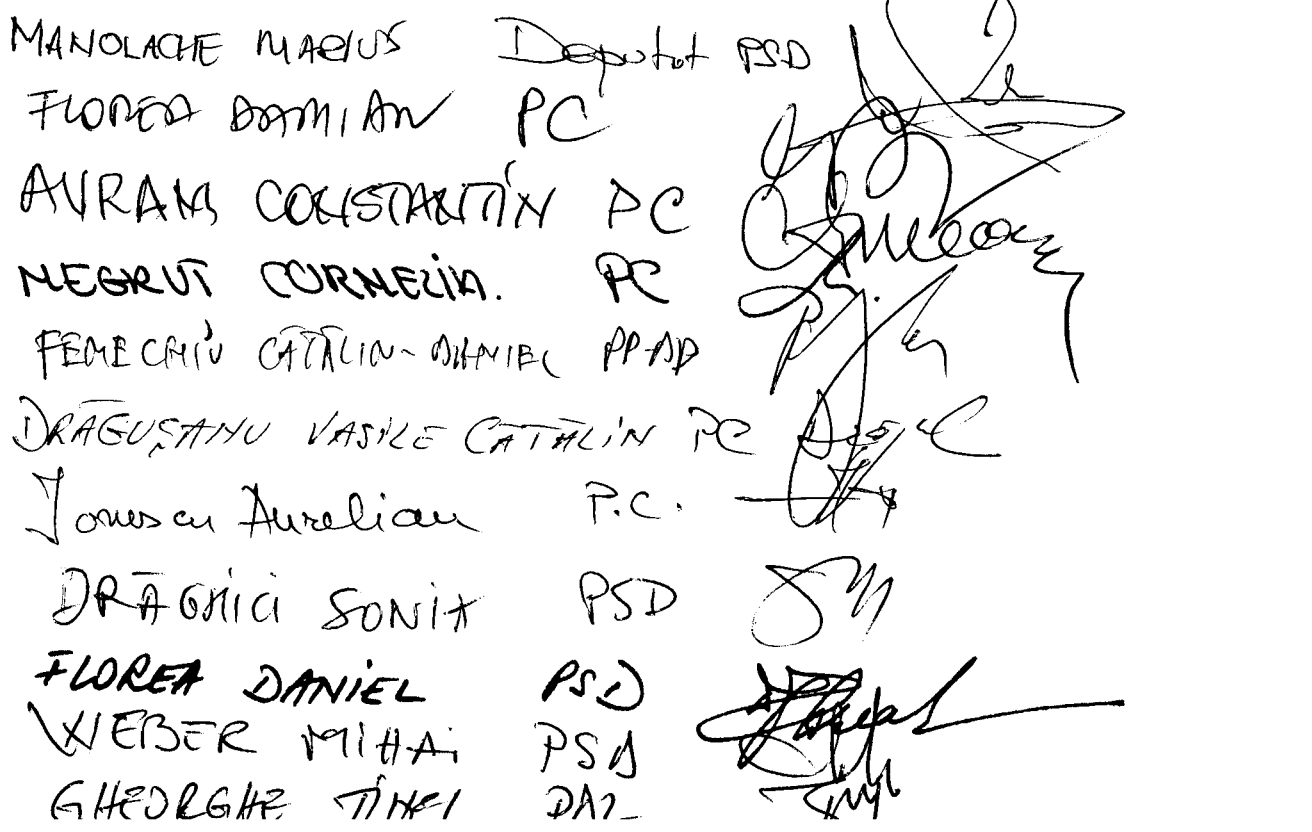 MANOLACHE MARIUS Deputat PSD
FLOREA DAMIAN PC
AVRAM CONSTANTIN PC
NEGRUT CORNELIA. PC
FENECHIU CĂTĂLIN-DANIEL PP-DD
DRĂGUȘANU VASILE CĂTĂLIN PC
Ionescu Aurelian P.C.
DRĂGHICI SONIA PSD
FLOREA DANIEL PSD
WEBER MIHAI PSD
GHEORGHE TINEL